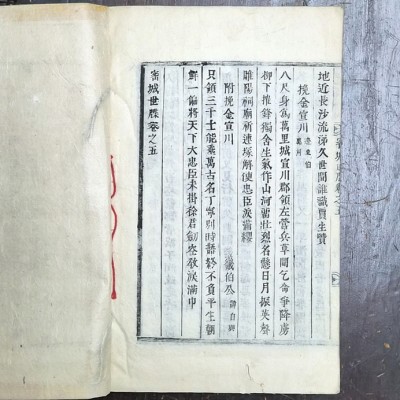 地近長沙流涕久世間誰識賈生賢
挽金宣川
八尺身爲萬里城宣川郡領左營兵草間乞命爭降虜
柳下推鋒獨舍生氣作山河留壯烈名懸日月振英聲
睢陽祠廟新連塚解使忠臣淚滿纓
附挽金宣川
只領三千士能垂萬古名丁寧別時語終不負平生朝
鮮一偏將天下大忠臣未掛徐君劒空敎淚滿巾
密城世牒卷之五